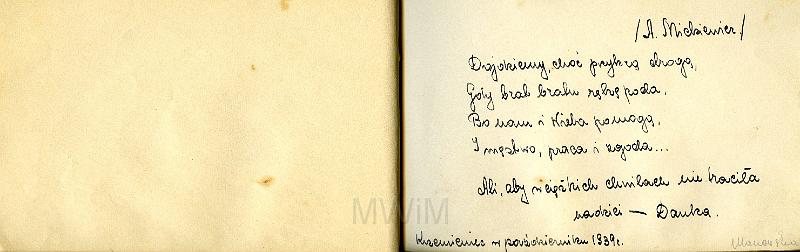 /A. Mickiewicz/
Dojdziemy, choć przykrą drogą,
Gdy brat bratu rękę poda.
Bo nam i Nieba pomogą,
I męstwo, praca i zgoda...
Ali, aby w ciężkich chwilach nie traciła
nadziei — Danka.
Krzemieniec w październiku 1939r.
MWiM